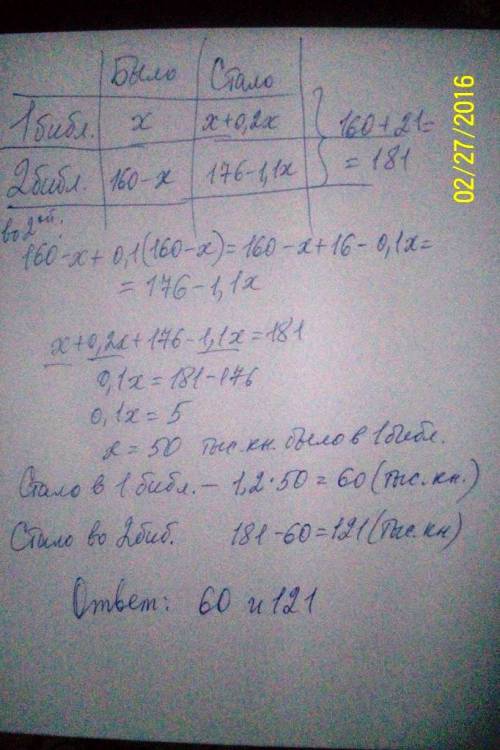 Было Стало
1 библ. x x+0,2x 160+21=
2 библ. 160-x 176-1,1x = 181
во 2ой:
160-x+0,1(160-x)=160-x+16-0,1x=
= 176-1,1x
x+0,2x+176-1,1x=181
0,1x=181-176
0,1x=5
x=50 тыс.кн. было в 1 библ.
Стало в 1 библ. - 1,2·50=60(тыс.кн.)
Стало во 2биб. 181-60=121(тыс.кн)
Ответ: 60 и 121
02/27/2016